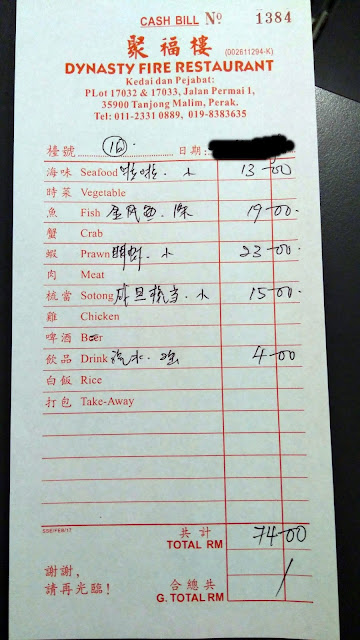 CASH BILL Nº 1384
聚福樓 (002611294-K)
DYNASTY FIRE RESTAURANT
Kedai dan Pejabat:
PLot 17032 & 17033, Jalan Permai 1,
35900 Tanjong Malim, Perak.
Tel: 011-2331 0889, 019-8383635
檯號 16 日期:
海味 Seafood 啦啦. 小 13-00
時菜 Vegetable
魚 Fish 19-00
蟹 Crab
蝦 Prawn 小 23-00
肉 Meat
梳當 Sotong 小 15-00
雞 Chicken
啤酒 Beer
飲品 Drink 汽水. 4-00
白飯 Rice
打包 Take-Away
SSE/FEB/17
共計
TOTAL RM 74-00
謝謝,
請再光臨!
合總共
G. TOTAL RM